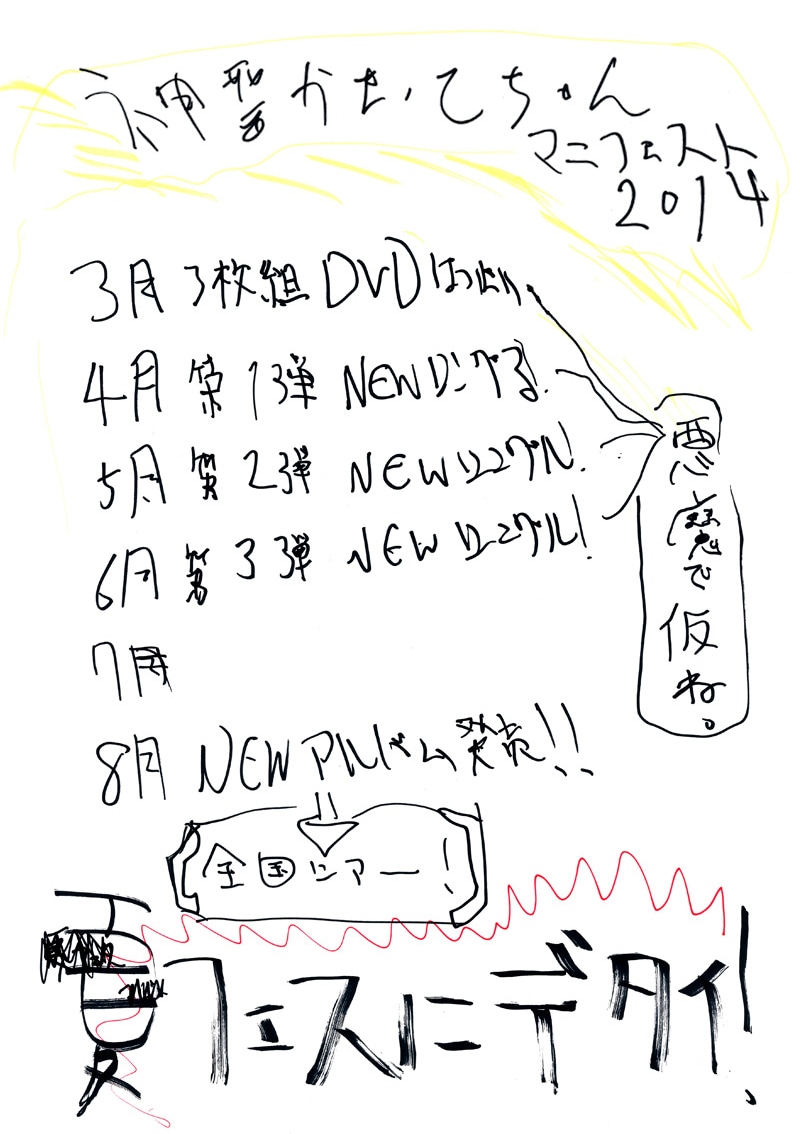 神聖かまってちゃん
マニフェスト
2014
3月 3枚組 DVD はつばい
4月 第1弾 NEWシングる!
5月 第2弾 NEWシングル!
6月 第3弾 NEWシングル!
悪魔で仮ね。
7月
8月 NEWアルバム発売!!
全国ツアー!
夏フェスにデタイ!